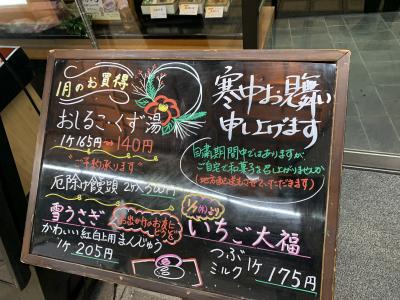 1月のお買得
おしるこ・くず湯
1ケ165円→140円
"ご予約承ります"
厄除け饅頭 2ケ入300円
雪うさぎ
お出かけのお供にどうぞ
かわいい紅白上用まんじゅう
1ケ205円
寒中お見舞い
申し上げます
自粛期間中ではありますが
ご自宅で和菓子を召し上がりませんか
(地方発送もさせていただきます)
1/7(木)より
いちご大福
つぶ
ミルク
1ケ175円